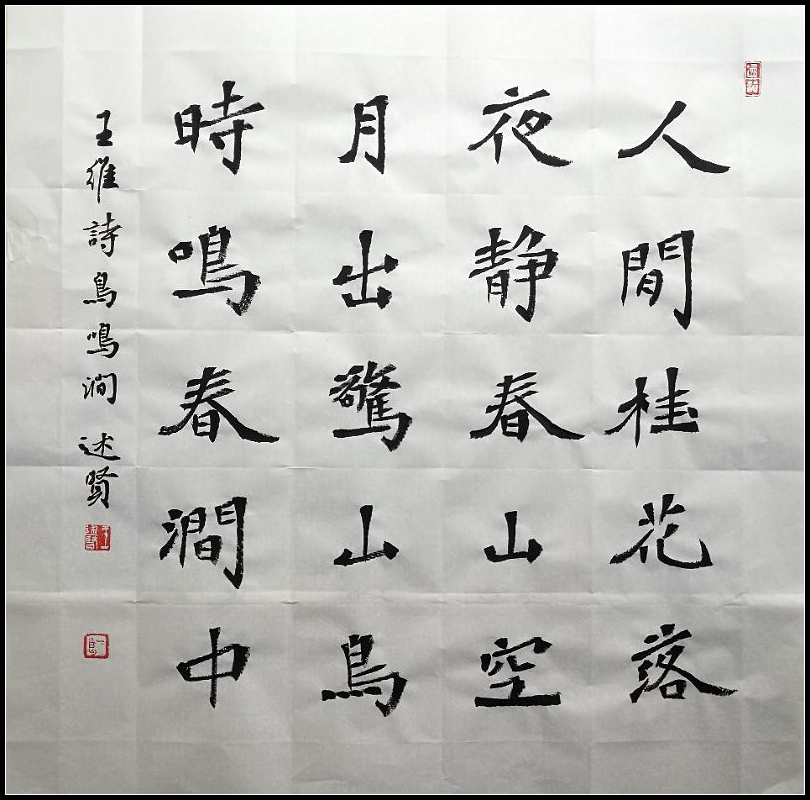 人閒桂花落
夜静春山空
月出驚山鳥
時鳴春澗中
王維詩鳥鳴澗 述賢